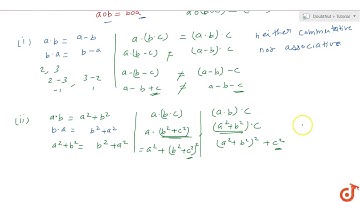 Doubtnut • Tutorial
aob = boa
(i) a·b = a-b
b·a = b-a
2, 3
2-3, 3-2
-1, 1
a·(b·c) = (a·b)·c
a·(b-c) ≠ (a-b)·c
a-(b-c) ≠ (a-b)-c
a-b+c ≠ a-b-c
neither commutative
nor associative
(ii) a·b = a²+b²
b·a = b²+a²
a²+b² = b²+a²
a·(b·c)
a·(b²+c²)
= a²+(b²+c²)²
(a·b)·c
(a²+b²)·c
(a²+b²)²+c²